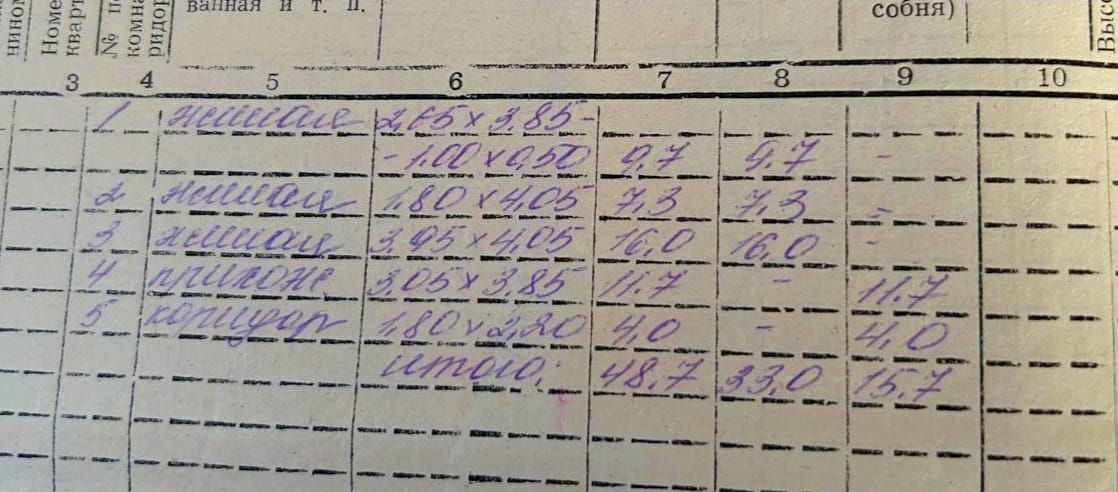 нином
Номе
кварт
№ по
комна
ридор
ванная и т. п.
собня)
Высо
3 4 5 6 7 8 9 10
1 жилая 2,65 x 3,85 -
- 1.00 x 0,50 9,7 9.7 -
2 жилая 1.80 x 4,05 7,3 7,3 -
3 жилая 3,95 x 4,05 16,0 16,0 -
4 прихож 3,05 x 3,85 11.7 - 11.7
5 коридор 1,80 x 2,20 4,0 - 4,0
итого: 48.7 33,0 15.7